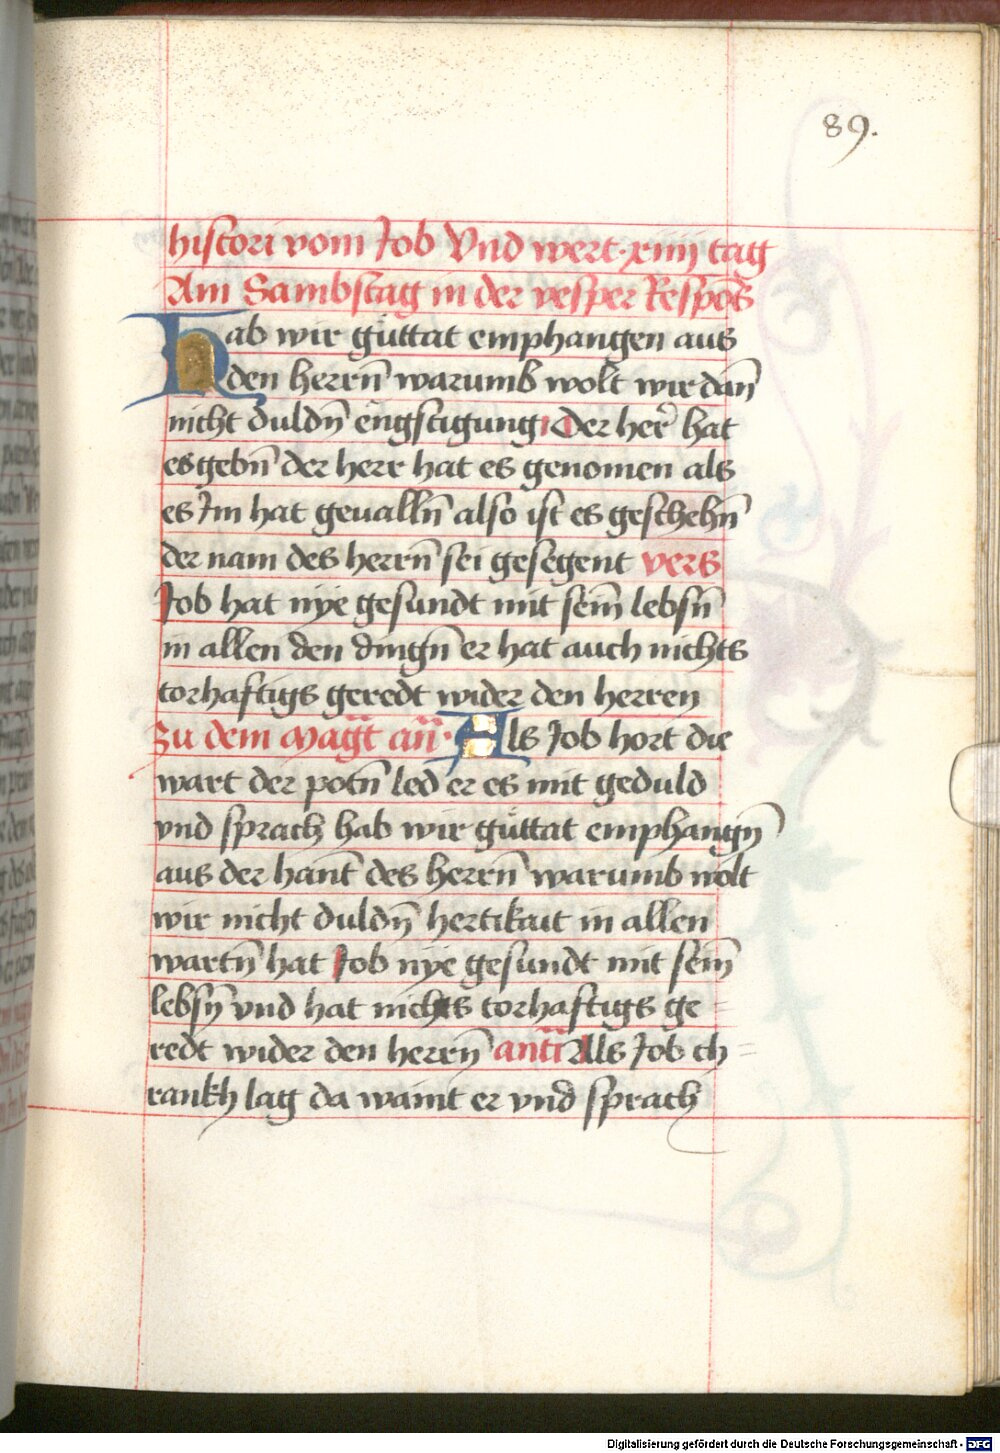 89.
histori vom Job Vnd wert · xiiij tag
Am Sambstag in der vesper Respōs
Hab wir gůttat emphangen aus
den herrn̄ warumb wolt wir dan̄
nicht duldn̄ engstigung Der her̄ hat
es gebn̄ der herr hat es genomen als
es Im hat geualln̄ also ist es geschehn̄
der nam des herrn̄ sei gesegent vers
Job hat nye gesundt mit seim̄ lebsn̄
in allen den dingn̄ er hat auch nichts
torhaftigs geredt wider den herren
Zu dem magt̄ an̄ · Als Job hort die
wart der potn̄ led er es mit geduld
vnd sprach hab wir gůttat emphangn̄
aus der hant̄ des herrn̄ warumb wolt
wir nicht duldn̄ hertikait in allen
wartn̄ hat Job nye gesundt mit seim̄
lebsn̄ vnd hat nichts torhaftigs ge
redt wider den herrn̄ antī Als Job ch=
rankh lag da waint er vnd sprach
Digitalisierung gefördert durch die Deutsche Forschungsgemeinschaft - DFG